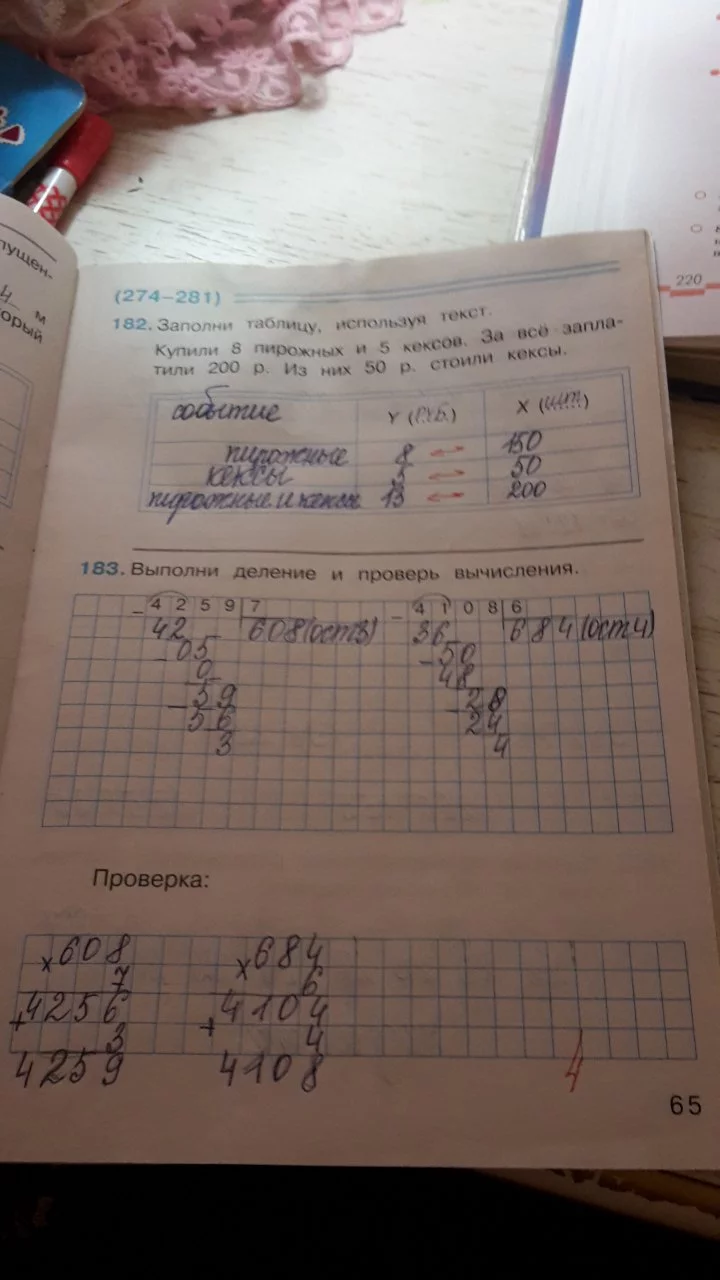 пущен-
4 м
220
(274–281)
182. Заполни таблицу, используя текст.
Купили 8 пирожных и 5 кексов. За всё запла-
тили 200 р. Из них 50 р. стоили кексы.
событие Y (руб.) X (шт.)
пирожные 8 150
кексы 5 50
пирожные и кексы 13 200
183. Выполни деление и проверь вычисления.
– 4 2 5 9 7 – 4 1 0 8 6
42 608(ост3) 36 684(ост4)
– 05 – 50
0 48
– 59 – 28
56 24
3 4
Проверка:
x 608 x 684
7 6
+ 4256 + 4104
3 4
4259 4108
4
65